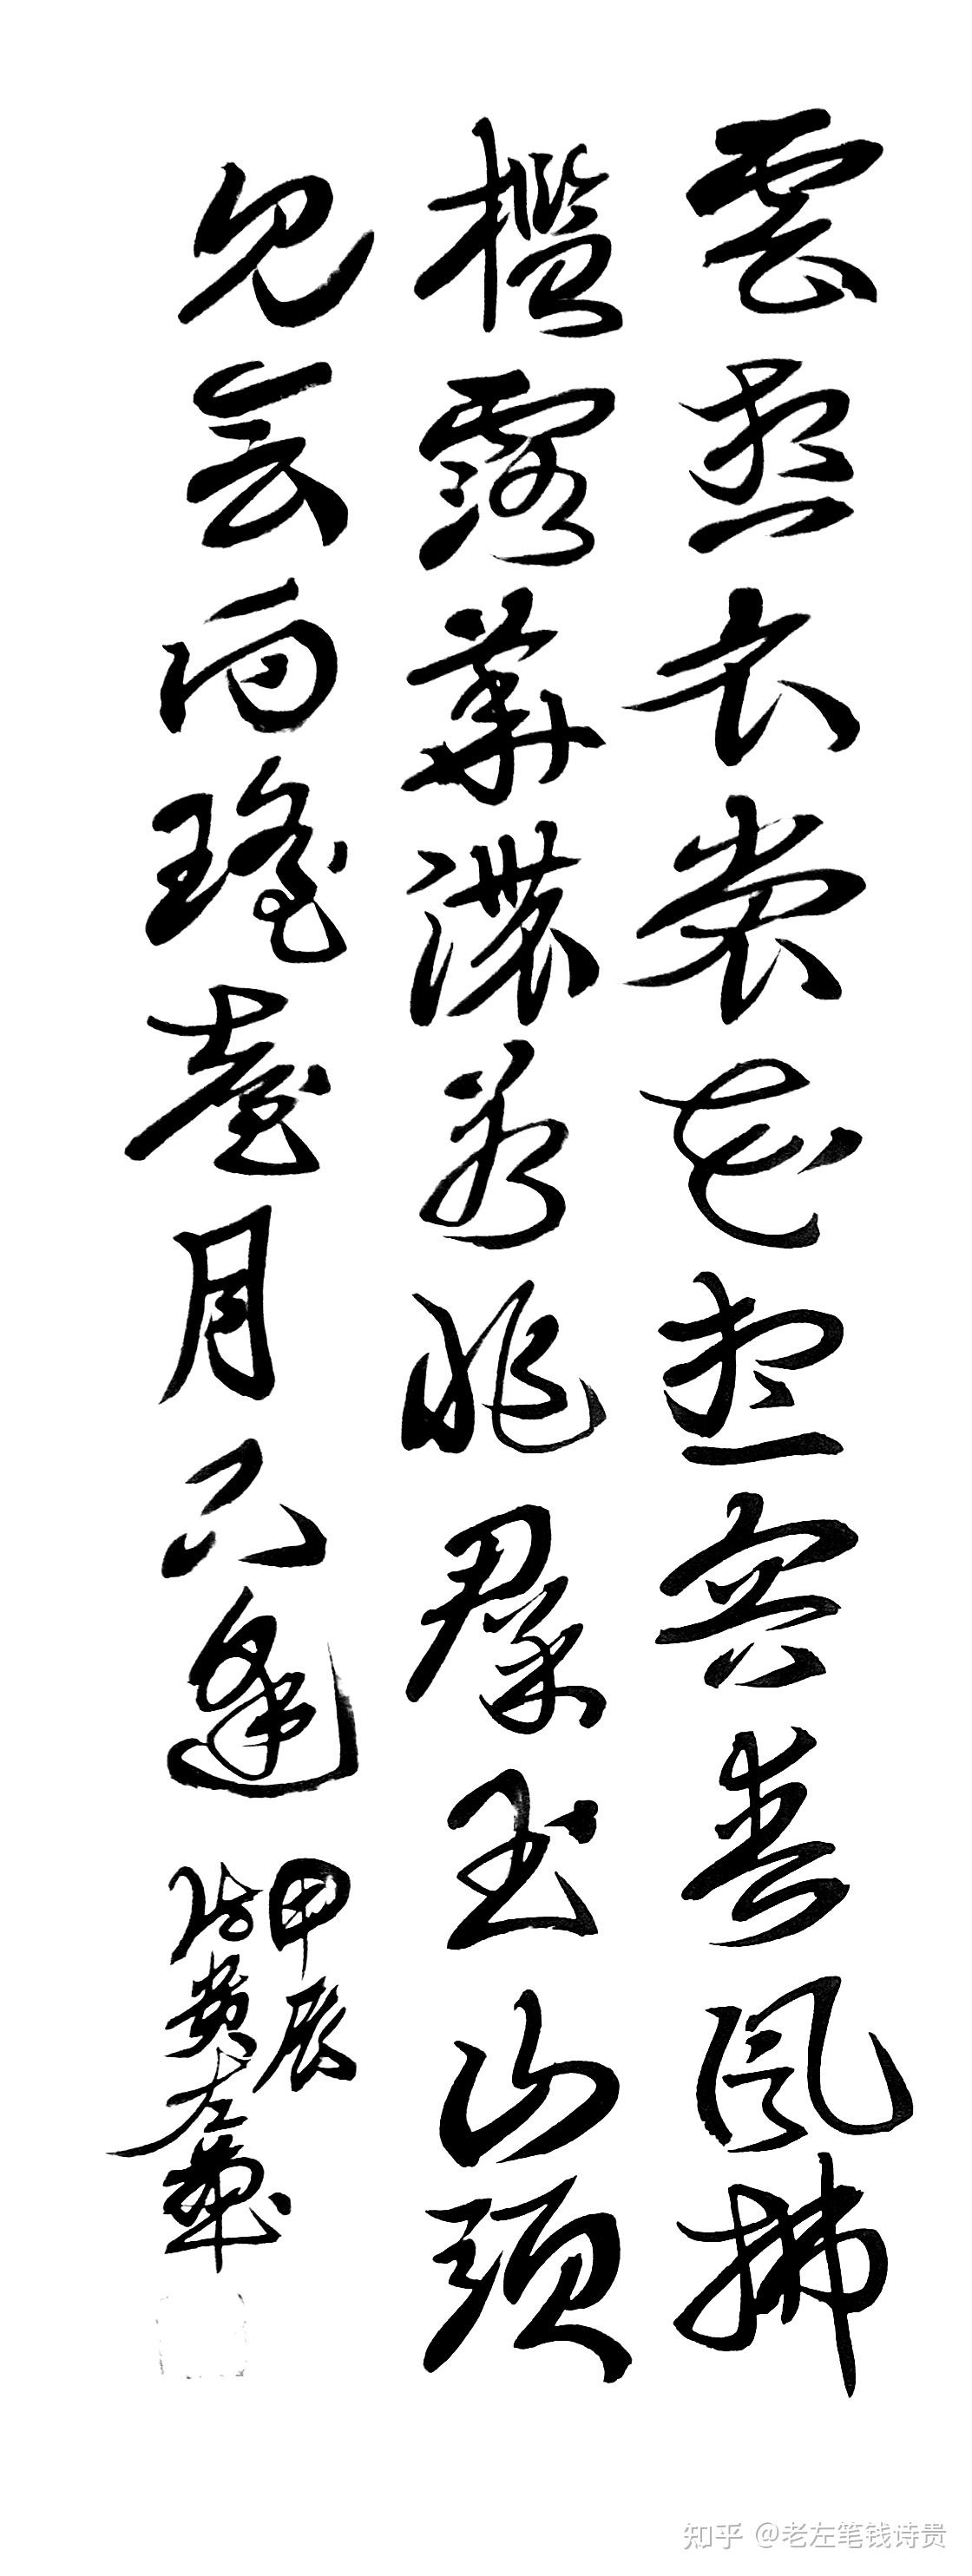 雲想衣裳花想容春風拂
檻露華濃若非羣玉山頭
見會向瑤臺月下逢
甲辰
左
知乎 @老左笔钱诗贵